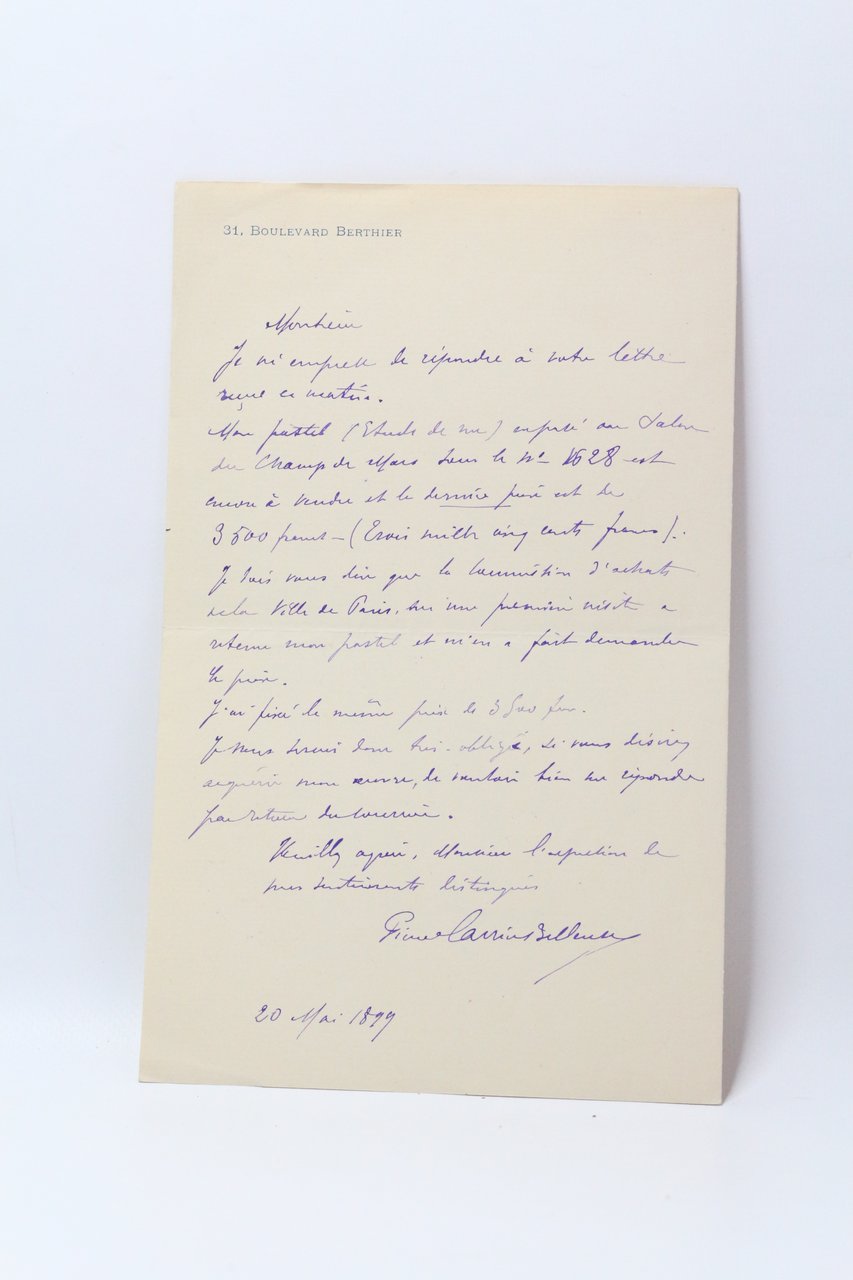 31, BOULEVARD BERTHIER
Monsieur
Je m'empresse de répondre à votre lettre
reçue ce matin.
Mon pastel (Etude de nu) exposé au Salon
du Champ de Mars sous le No 1628 est
encore à vendre et le dernier prix est de
3500 francs - (Trois mille cinq cents francs).
Je dois vous dire que la Commission d'achats
de la Ville de Paris, sur une première visite a
retenu mon pastel et m'en a fait demander
le prix.
J'ai fixé le même prix de 3500 frs.
Je vous serais donc très-obligé, si vous désirez
acquérir mon œuvre, de vouloir bien me répondre
par retour du courrier.
Veuillez agréer, Monsieur l'expression de
mes sentiments distingués
Pierre Carrier Belleuse
20 Mai 1899